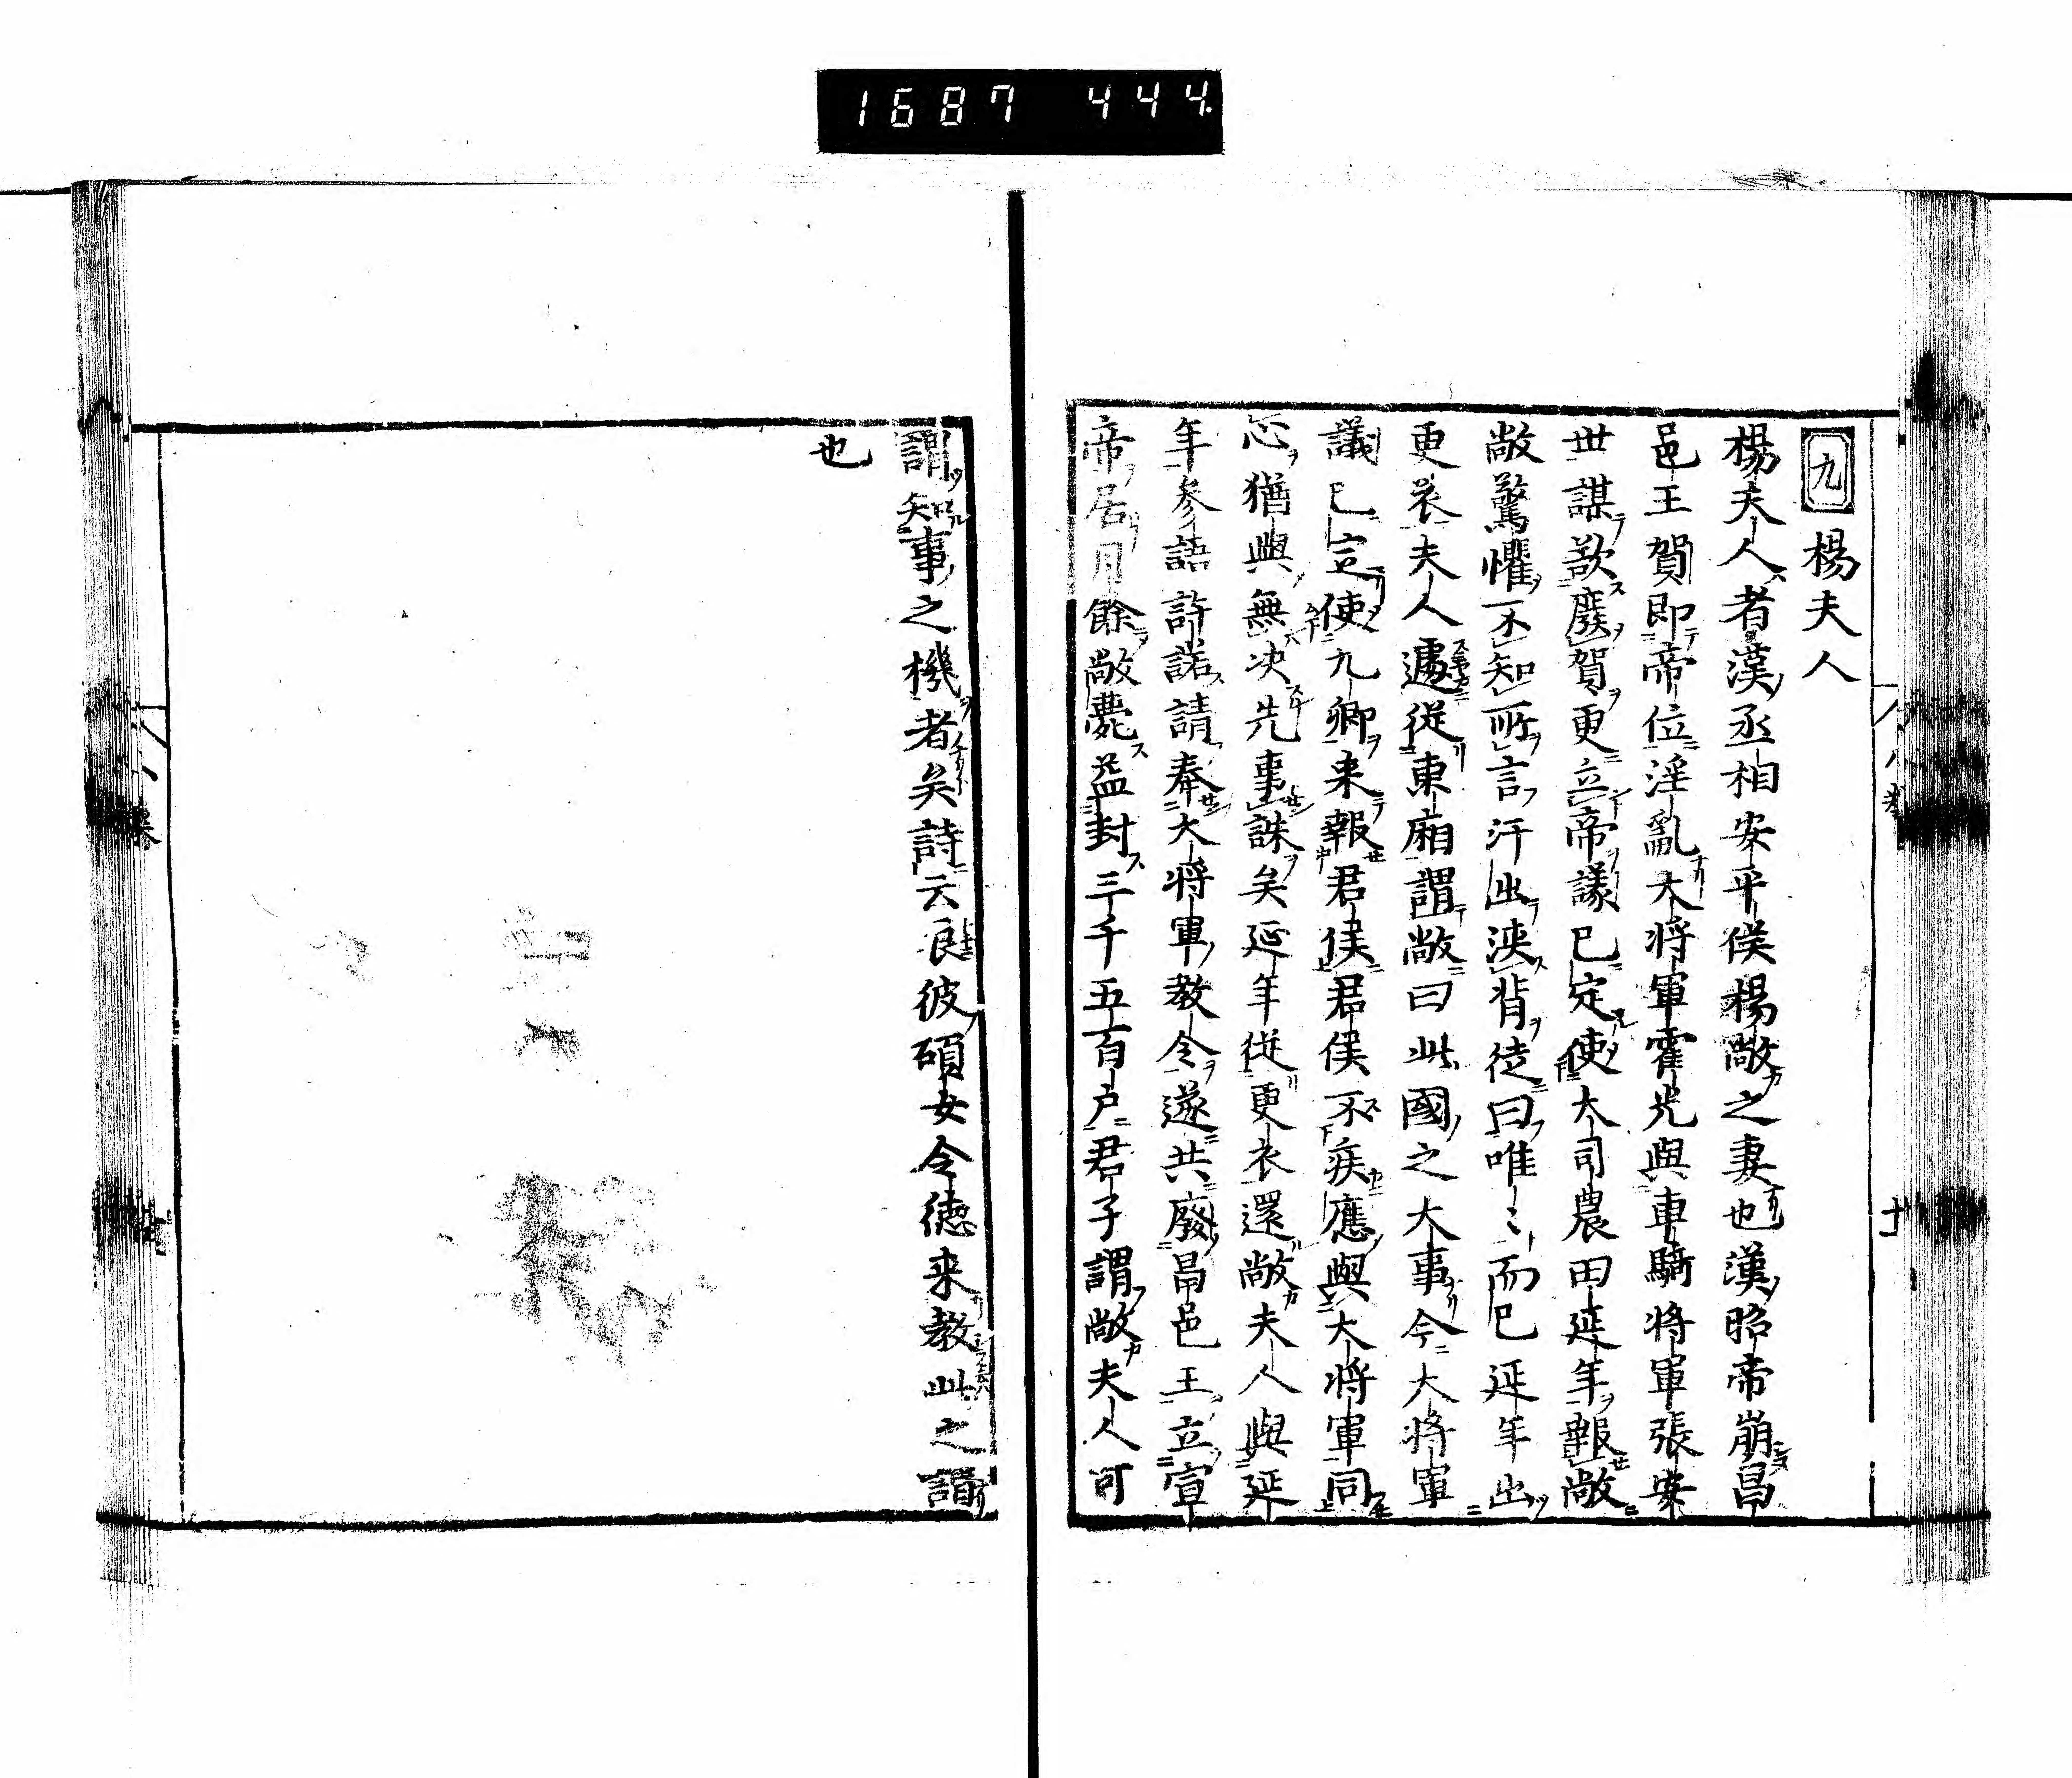 1687 444.
九 楊夫人
楊夫人者漢丞相安平侯楊敞之妻也漢昭帝崩昌
邑王賀即帝位淫亂大将軍霍光與車騎将軍張安
世謀欲廢賀更立帝議已定使大司農田延年報敞
敞驚懼不知所言汗出浹背徒曰唯〻而已延年出
更衣夫人遽從東廂謂敞曰此國之大事今大将軍
議已定使九卿来報君侯君侯不疾應與大将軍同
心猶與無决先事誅矣延年從更衣還敞夫人與延
年参語許諾請奉大将軍教令遂共廢昌邑王立宣
帝居月餘敞薨益封三千五百户君子謂敞夫人可
謂知事之機者矣詩云辰彼碩女令徳来教此之謂
也